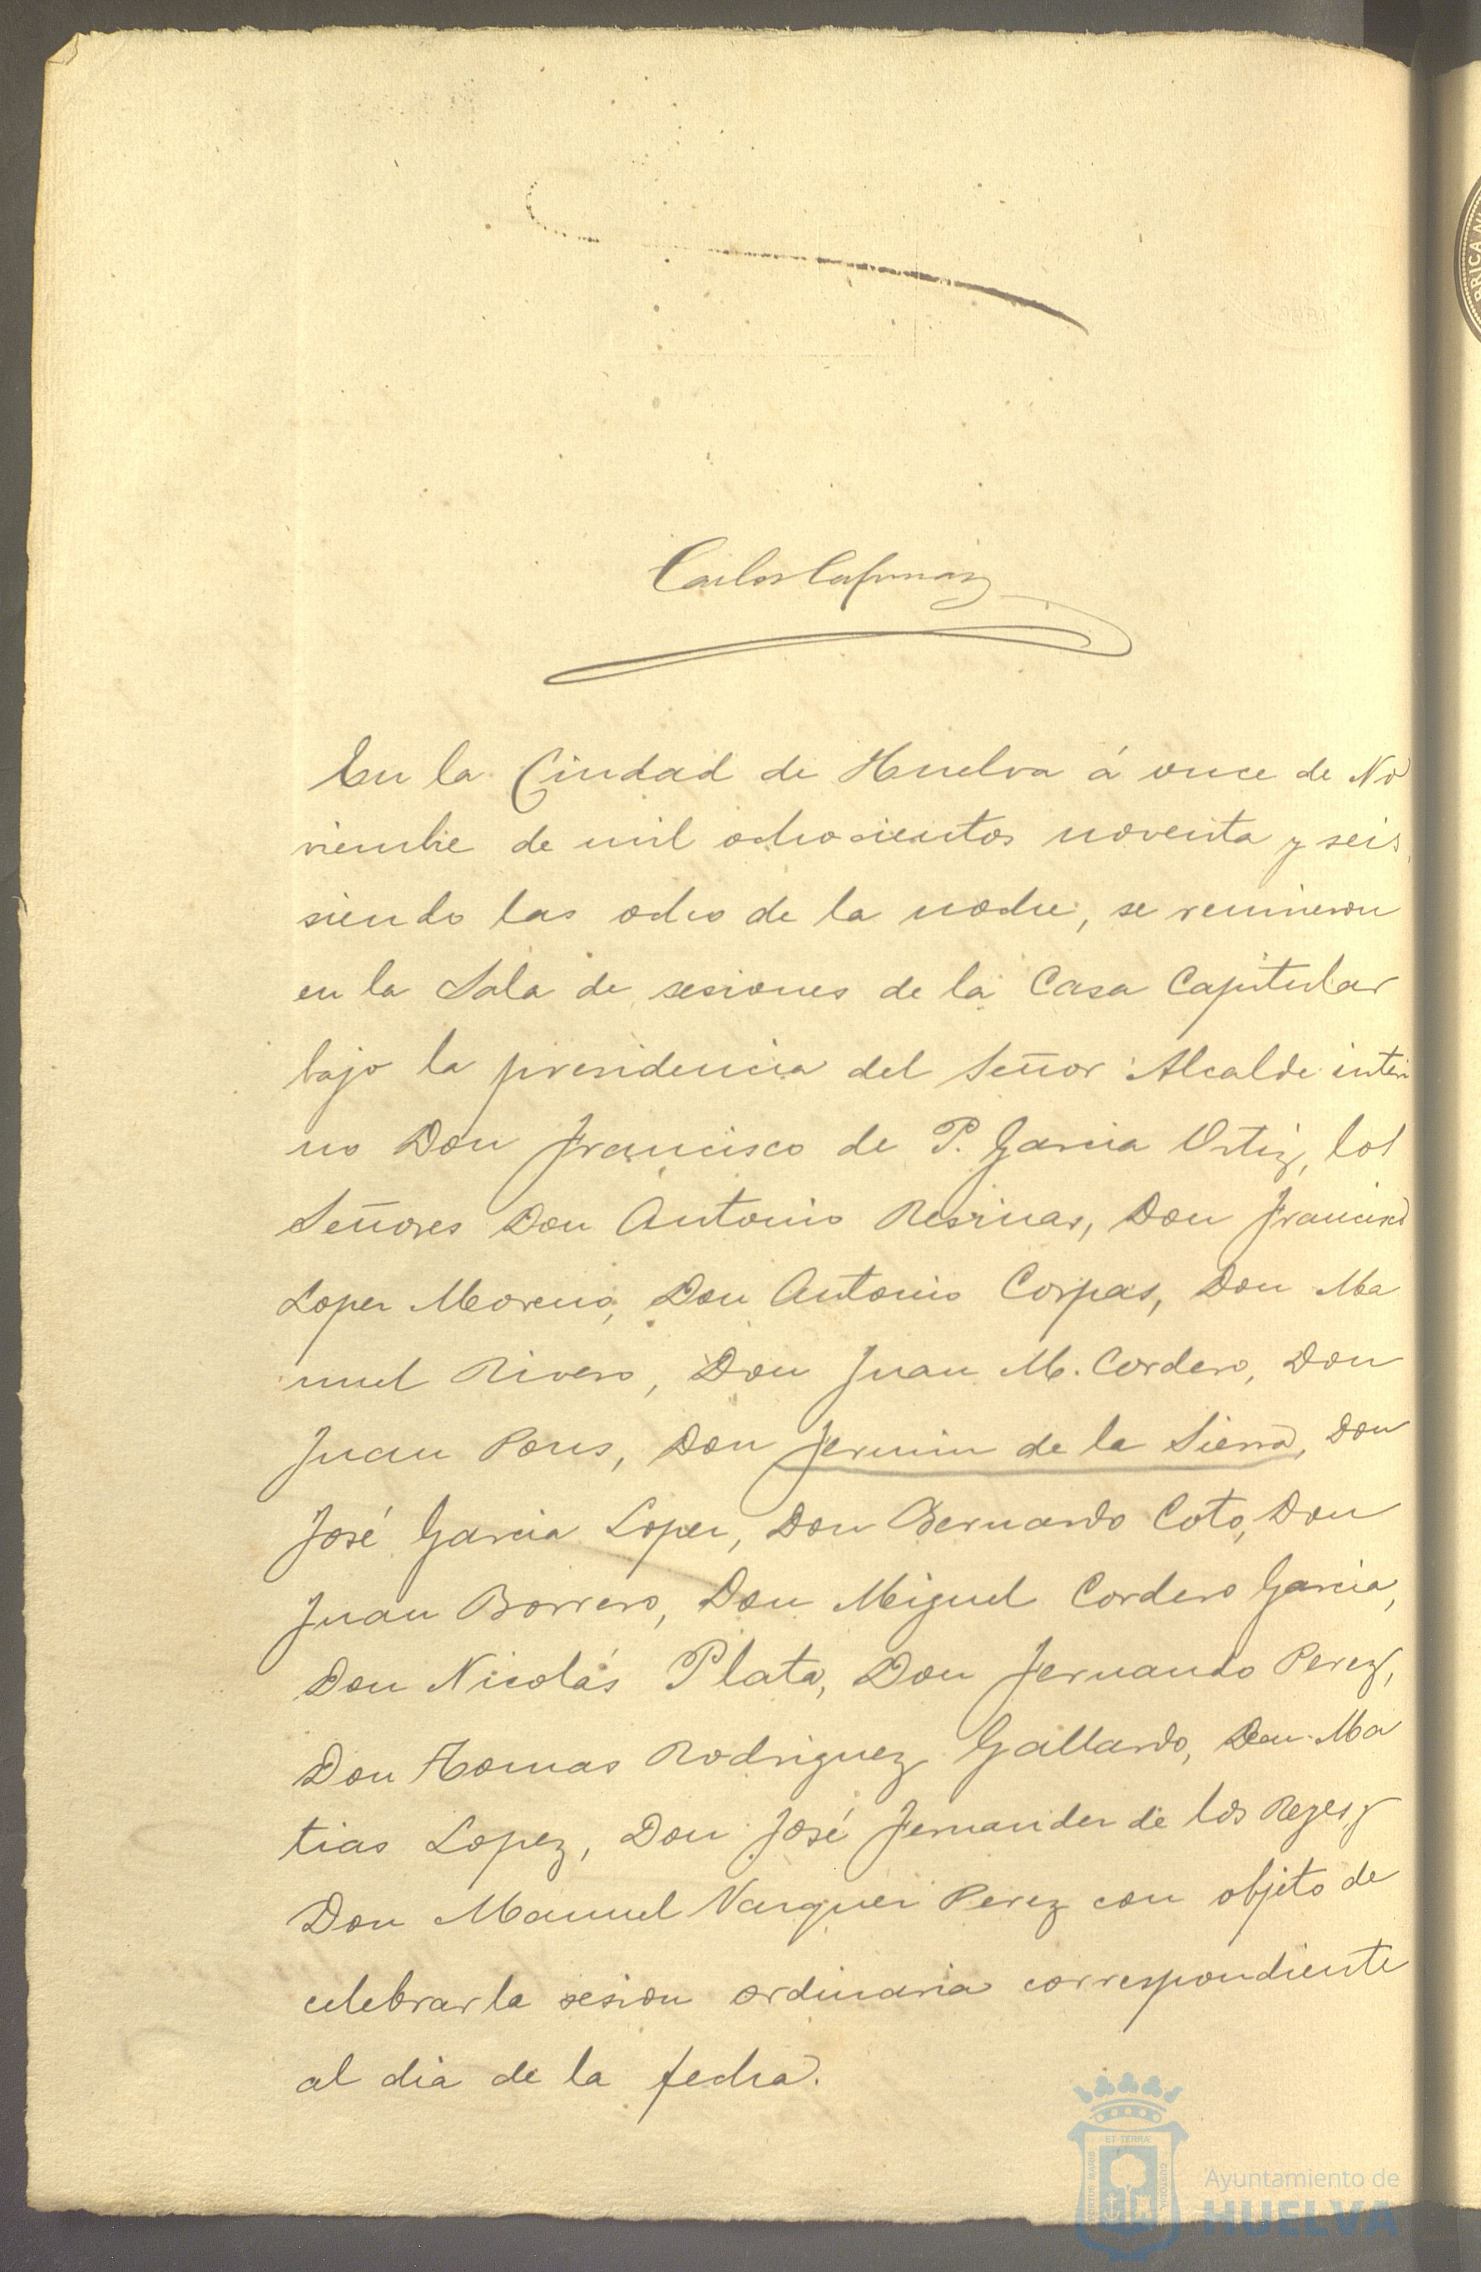 Carlos
En la Ciudad de Huelva á once de No
viembre de mil ochocientos noventa y seis,
siendo las ocho de la noche, se reunieron
en la Sala de sesiones de la Casa Capitular
bajo la presidencia del Señor Alcalde interi
no Don Francisco de P. Garcia Ortiz, los
Señores Don Antonio Resinas, Don Francisco
Lopez Moreno, Don Antonio Corpas, Don Ma
nuel Rivero, Don Juan M. Cordero, Don
Juan Pons, Don Fermin de la Sierra, Don
José Garcia Lopez, Don Bernardo Coto, Don
Juan Borrero, Don Miguel Cordero Garcia,
Don Nicolás Plata, Don Fernando Perez,
Don Tomas Rodriguez Gallardo, Don Ma
tias Lopez, Don José Fernandez de los Reyes, y
Don Manuel Vazquez Perez con objeto de
celebrar la sesion ordinaria correspondiente
al dia de la fecha.
Ayuntamiento de
HUELVA